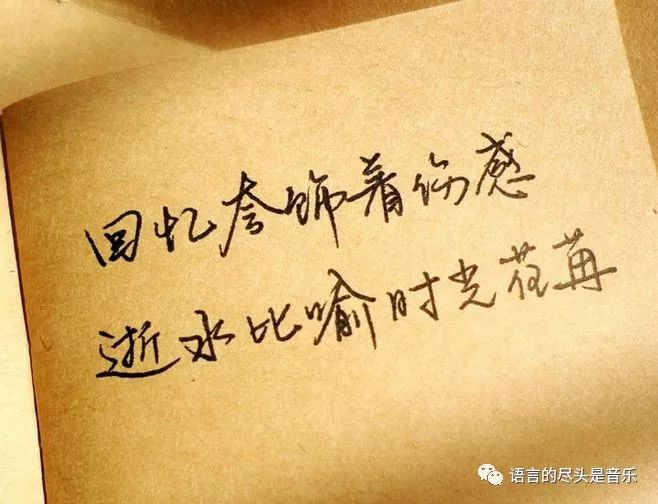 回忆夸饰着伤感
逝水比喻时光荏苒
语言的尽头是音乐